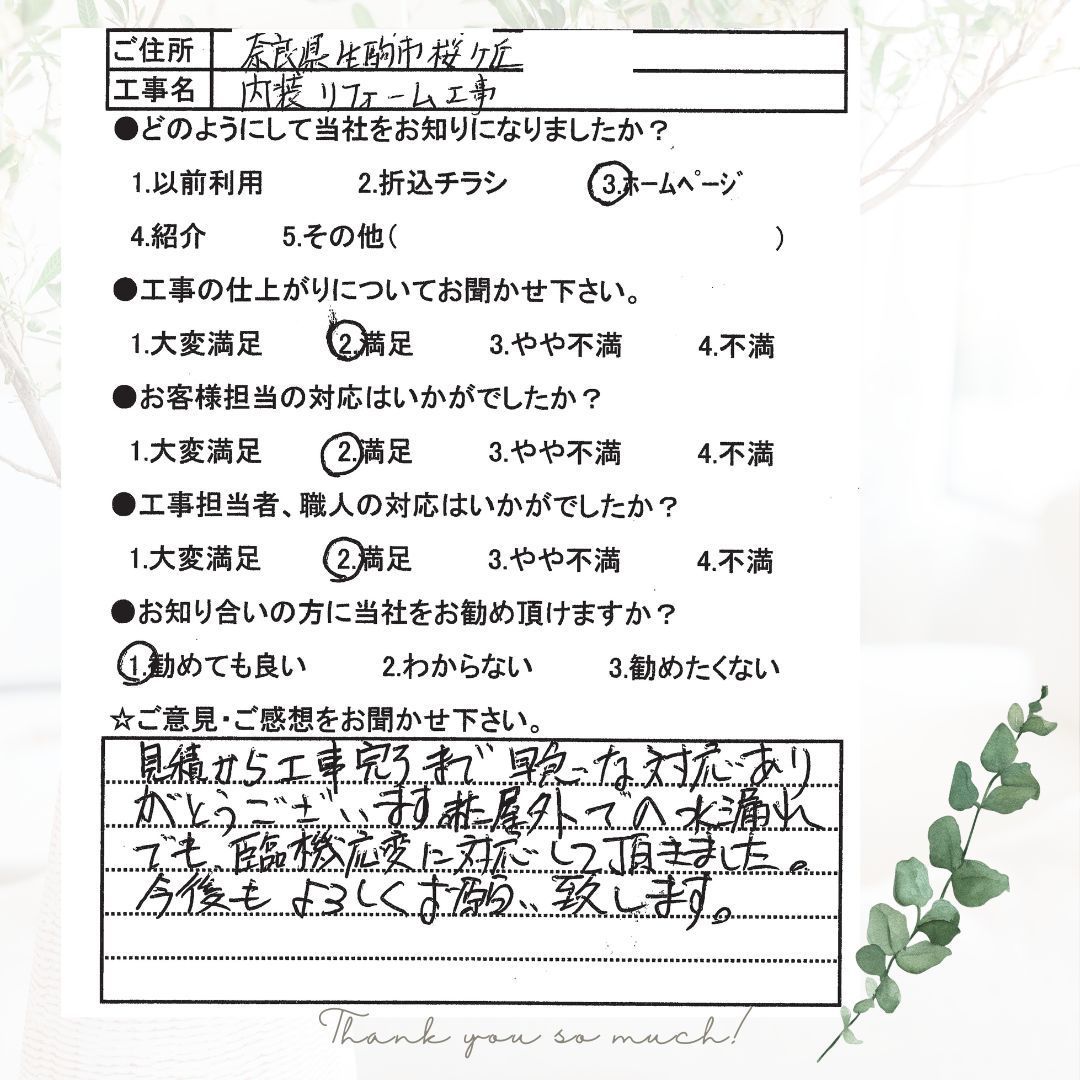 ご住所 奈良県生駒市桜ヶ丘
工事名 内装リフォーム工事
●どのようにして当社をお知りになりましたか？
1.以前利用 2.折込チラシ 3.ホームページ
4.紹介 5.その他( )
●工事の仕上がりについてお聞かせ下さい。
1.大変満足 2.満足 3.やや不満 4.不満
●お客様担当の対応はいかがでしたか？
1.大変満足 2.満足 3.やや不満 4.不満
●工事担当者、職人の対応はいかがでしたか？
1.大変満足 2.満足 3.やや不満 4.不満
●お知り合いの方に当社をお勧め頂けますか？
1.勧めても良い 2.わからない 3.勧めたくない
☆ご意見・ご感想をお聞かせ下さい。
見積から工事完了まで 早急な対応あり
がとうございます 屋外での水漏れ
でも、臨機応変に対応して頂きました。
今後もよろしくお願い致します。
Thank you so much!